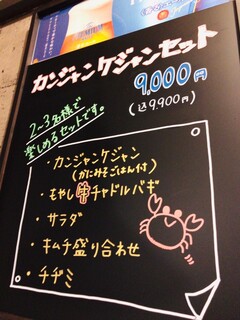 カンジャンケジャンセット
9,000円
(込9,900円)
2~3名様で
楽しめるセットです。
・カンジャンケジャン
(かにみそごはん付)
・もやし チャドルバギ
・サラダ
・キムチ盛り合わせ
・チヂミ